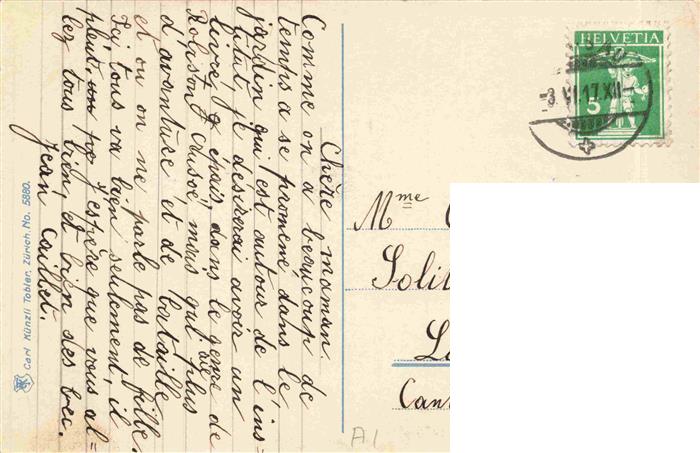 Chère maman
Comme on a beaucoup de
temps a se promené dans le
jardin qui est autour de l'ins=
titut, je désirerai avoir un
livre, mais, dans le genre de
"Robison Crusoé" mais qui aie plus
d'avanture et de bataille
et ou on ne parle pas de fille.
Ici tous va bien seulement, il
pleut, un po J'espère que vous al=
lez tous bien, et bien des bec.
Jean Caillet.
HELVETIA
5
-3.VI.17.XII-
Mme C
Solit
La
Can
A1
Carl Künzli Tobler, Zürich. No. 5880.